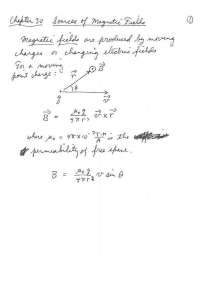 Chapter 30 Sources of Magnetic Fields ①
Magnetic fields are produced by moving
charges or changing electric fields
For a moving
point charge:
r⃗ B⃗
θ
v⃗
B⃗ = μ₀q / 4πr³ v⃗ × r⃗
where μ₀ = 4π×10⁻⁷ T·m/A is the
permeability of free space.
B = μ₀q / 4πr² v sin θ